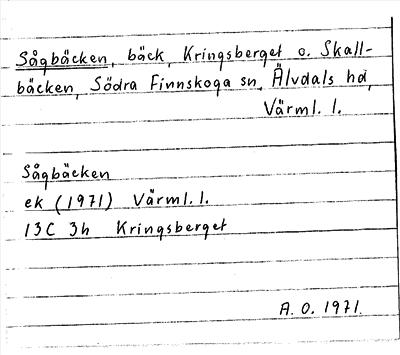 Sågbäcken, bäck, Kringsberget o. Skall-
bäcken, Södra Finnskoga sn, Älvdals hd,
Värml. l.
Sågbäcken
ek (1971) Värml. l.
13C 3h Kringsberget
A. O. 1971.